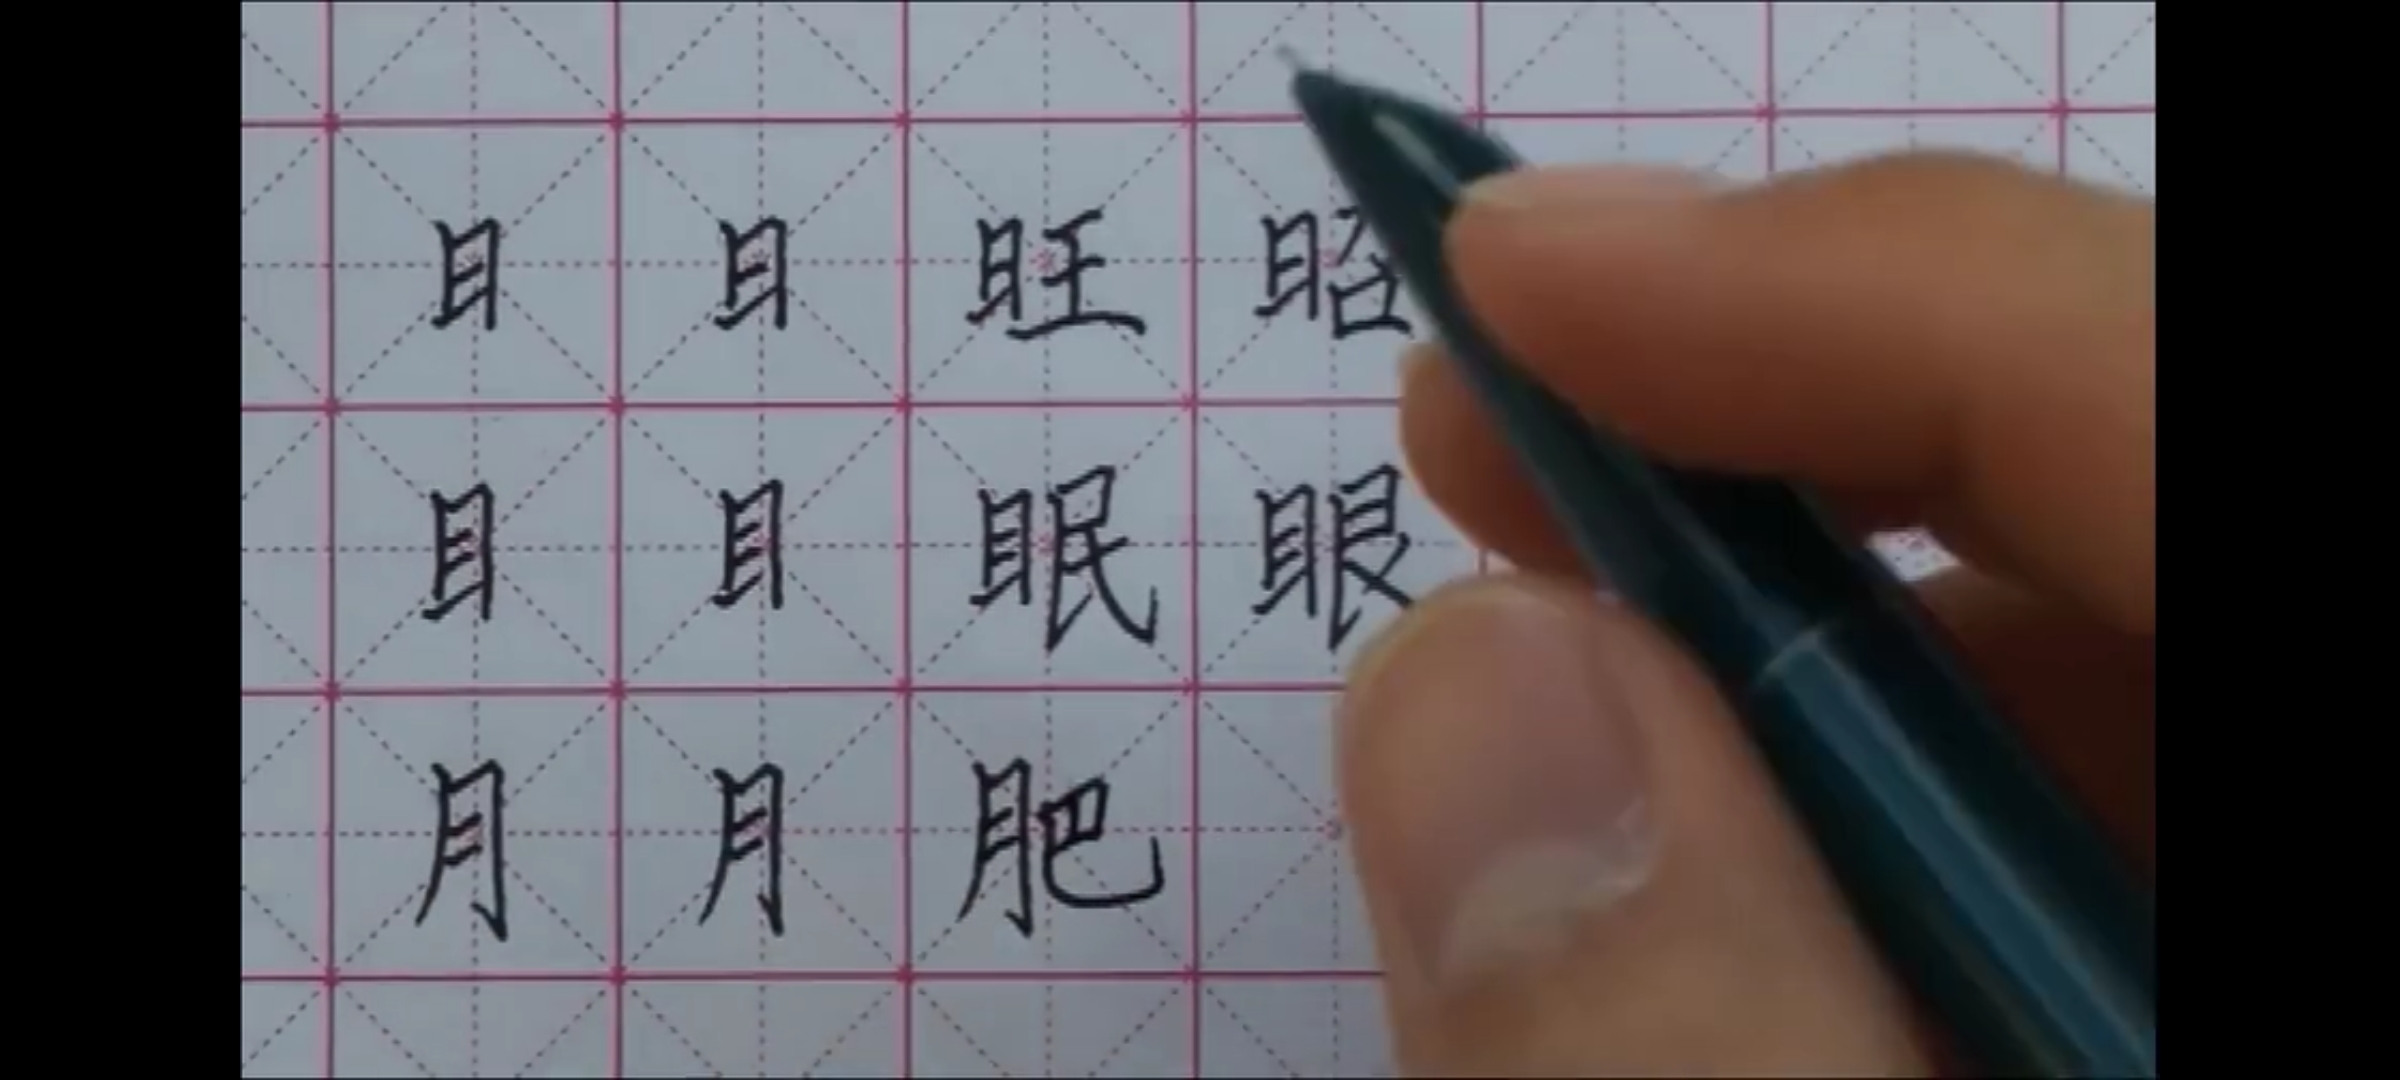 日 日 旺 昭
目 目 眠 眼
月 月 肥